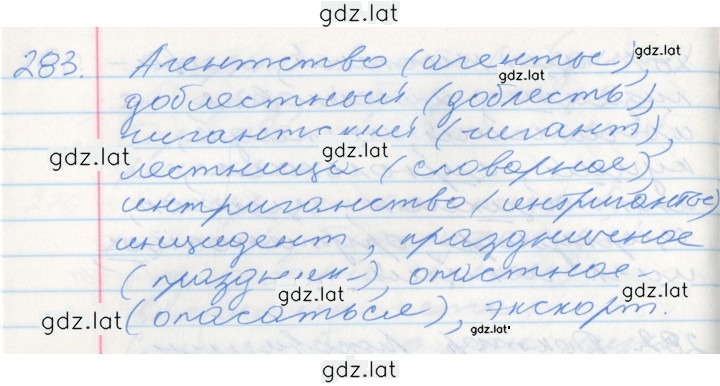 gdz.lat
283. Агентство (агенты), gdz.lat
доблестный (доблесть), gdz.lat
гигантский (гигант),
gdz.lat gdz.lat
лестница (словарное),
интриганство (интриганты)
инцидент, праздничное
(праздник), опастное - gdz.lat
gdz.lat
(опасаться), экскорт.
gdz.lat gdz.lat
gdz.lat